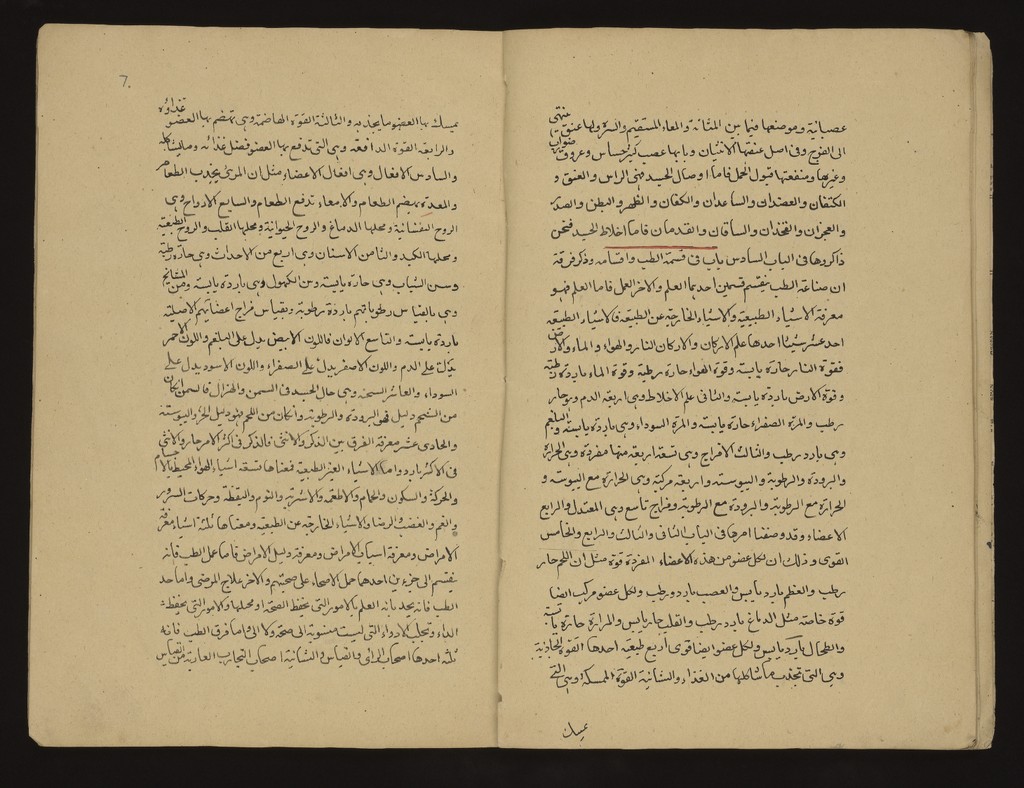 عصبانية وموضعها فيما بين المثانة والمعاء المستقيم والسرة ولها عنق ينتهي
الى الفرج وفي اصل عنقها الانثيان وبابها عصب كثير حساس وعروق ضوارب
وغيرها ومنفعتها قبول الحمل فاما اوصال الجسد فهي الراس والعنق و
الكتفان والعضدان والساعدان والكفان والظهر والبطن والصدر
والعجزان والفخذان والساقان والقدمان فاما اخلاط الجسد فنحن
ذاكروها في الباب السادس باب في قسمة الطب واقسامه وذكر فرقه
ان صناعة الطب تنقسم قسمين احدهما العلم والاخر العمل فاما العلم فهو
معرفة الاشياء الطبيعية والاشياء الخارجة عن الطبيعة فالاشياء الطبيعية
احد عشر شيئا احدها علم الاركان والاركان النار والهواء والماء والارض
فقوة النار حارة يابسة وقوة الهواء حارة رطبة وقوة الماء باردة رطبة
وقوة الارض باردة يابسة والثاني علم الاخلاط وهي اربعة الدم وهو حار
رطب والمرة الصفراء حارة يابسة والمرة السوداء وهي باردة يابسة والبلغم
وهي بارد رطب والثالث المزاج وهي تسعة اربعة منها مفردة وهي الحرارة
والبرودة والرطوبة واليبوسة واربعة مركبة وهي الحرارة مع اليبوسة و
الحرارة مع الرطوبة والبرودة مع الرطوبة ومزاج تاسع وهي المعتدل والرابع
الاعضاء وقد وصفنا امرها في الباب الثاني والثالث والرابع والخامس
القوى وذلك ان لكل عضو من هذه الاعضاء المفردة قوة مثل ان اللحم حار
رطب والعظم بارد يابس والعصب بارد رطب ولكل عضو مركب ايضا
قوة خاصة مثل الدماغ بارد رطب والقلب حار يابس والمرارة حارة يابسة
والطحال بارد يابس ولكل عضو ايضا قوى اربع طبيعة احدها القوة الجاذبة
وهي التي تجذب مشاكلها من الغذاء والثانية القوة الممسكة وهي التي
يمسك
7.
يمسك بها العضو ما يجذبه والثالثة القوة الهاضمة وهي تهضم بها العضو غذاؤه
والرابعة القوة الدافعة وهي التي تدفع بها العضو فضل غذائه وما يشاكله
والسادس الافعال وهي افعال الاعضاء مثل ان المرئ يجذب الطعام
والمعدة تهضم الطعام والامعاء تدفع الطعام والسابع الارواح وهي
الروح النفسانية ومحلها الدماغ والروح الحيوانية ومحلها القلب والروح الطبيعية
ومحلها الكبد والثامن الاسنان وهي اربع سن الاحداث وهي حارة رطبة
وسن الشباب وهي حارة يابسة وسن الكهول وهي باردة يابسة وسن المشائخ
وهي بالقياس رطوباتهم باردة رطوبة وبقياس مزاج اعضائهم الاصلية
باردة يابسة والتاسع الالوان فاللون الابيض يدل على البلغم واللون الاحمر
يدل على الدم واللون الاصفر يدل على الصفراء واللون الاسود يدل على
السوداء والعاشر السحنة وهي حال الجسد في السمن والهزال فالسمن ان كان
من الشحم دليل فهو البرودة والرطوبة وان كان من اللحم فهو دليل الحر واليبوسة
والحادي عشر معرفة الفرق بين الذكر والانثى فالذكر في اكثر الامر حار والانثى
في الاكثر بارد واما الاشياء الغير الطبيعية فمعناها تسعة اشياء الهواء المحيط بالاجسام
والحركة والسكون والحمام والاطعمة والاشربة والنوم واليقظة وحركات السرور
والغم والغضب والرضا والاشياء الخارجة عن الطبيعة ومعناها ثلثة اشياء معرفة
الامراض ومعرفة اسباب الامراض ومعرفة دليل الامراض فاما عمل الطب فانه
ينقسم الى جزءين احدهما حمل الاصحاء على صحتهم والاخر علاج المرضى واما حد
الطب فانه يحد بانه العلم بالامور التي يحفظ الصحة او محلها والامور التي يحفظ
الداء وتجلب الادواء التي ليست منسوبة الى صحة ولا الى واما فرق الطب فانه
ثلثة احدها اصحاب الراي والقياس والثانية اصحاب التجارب العارية من القياس